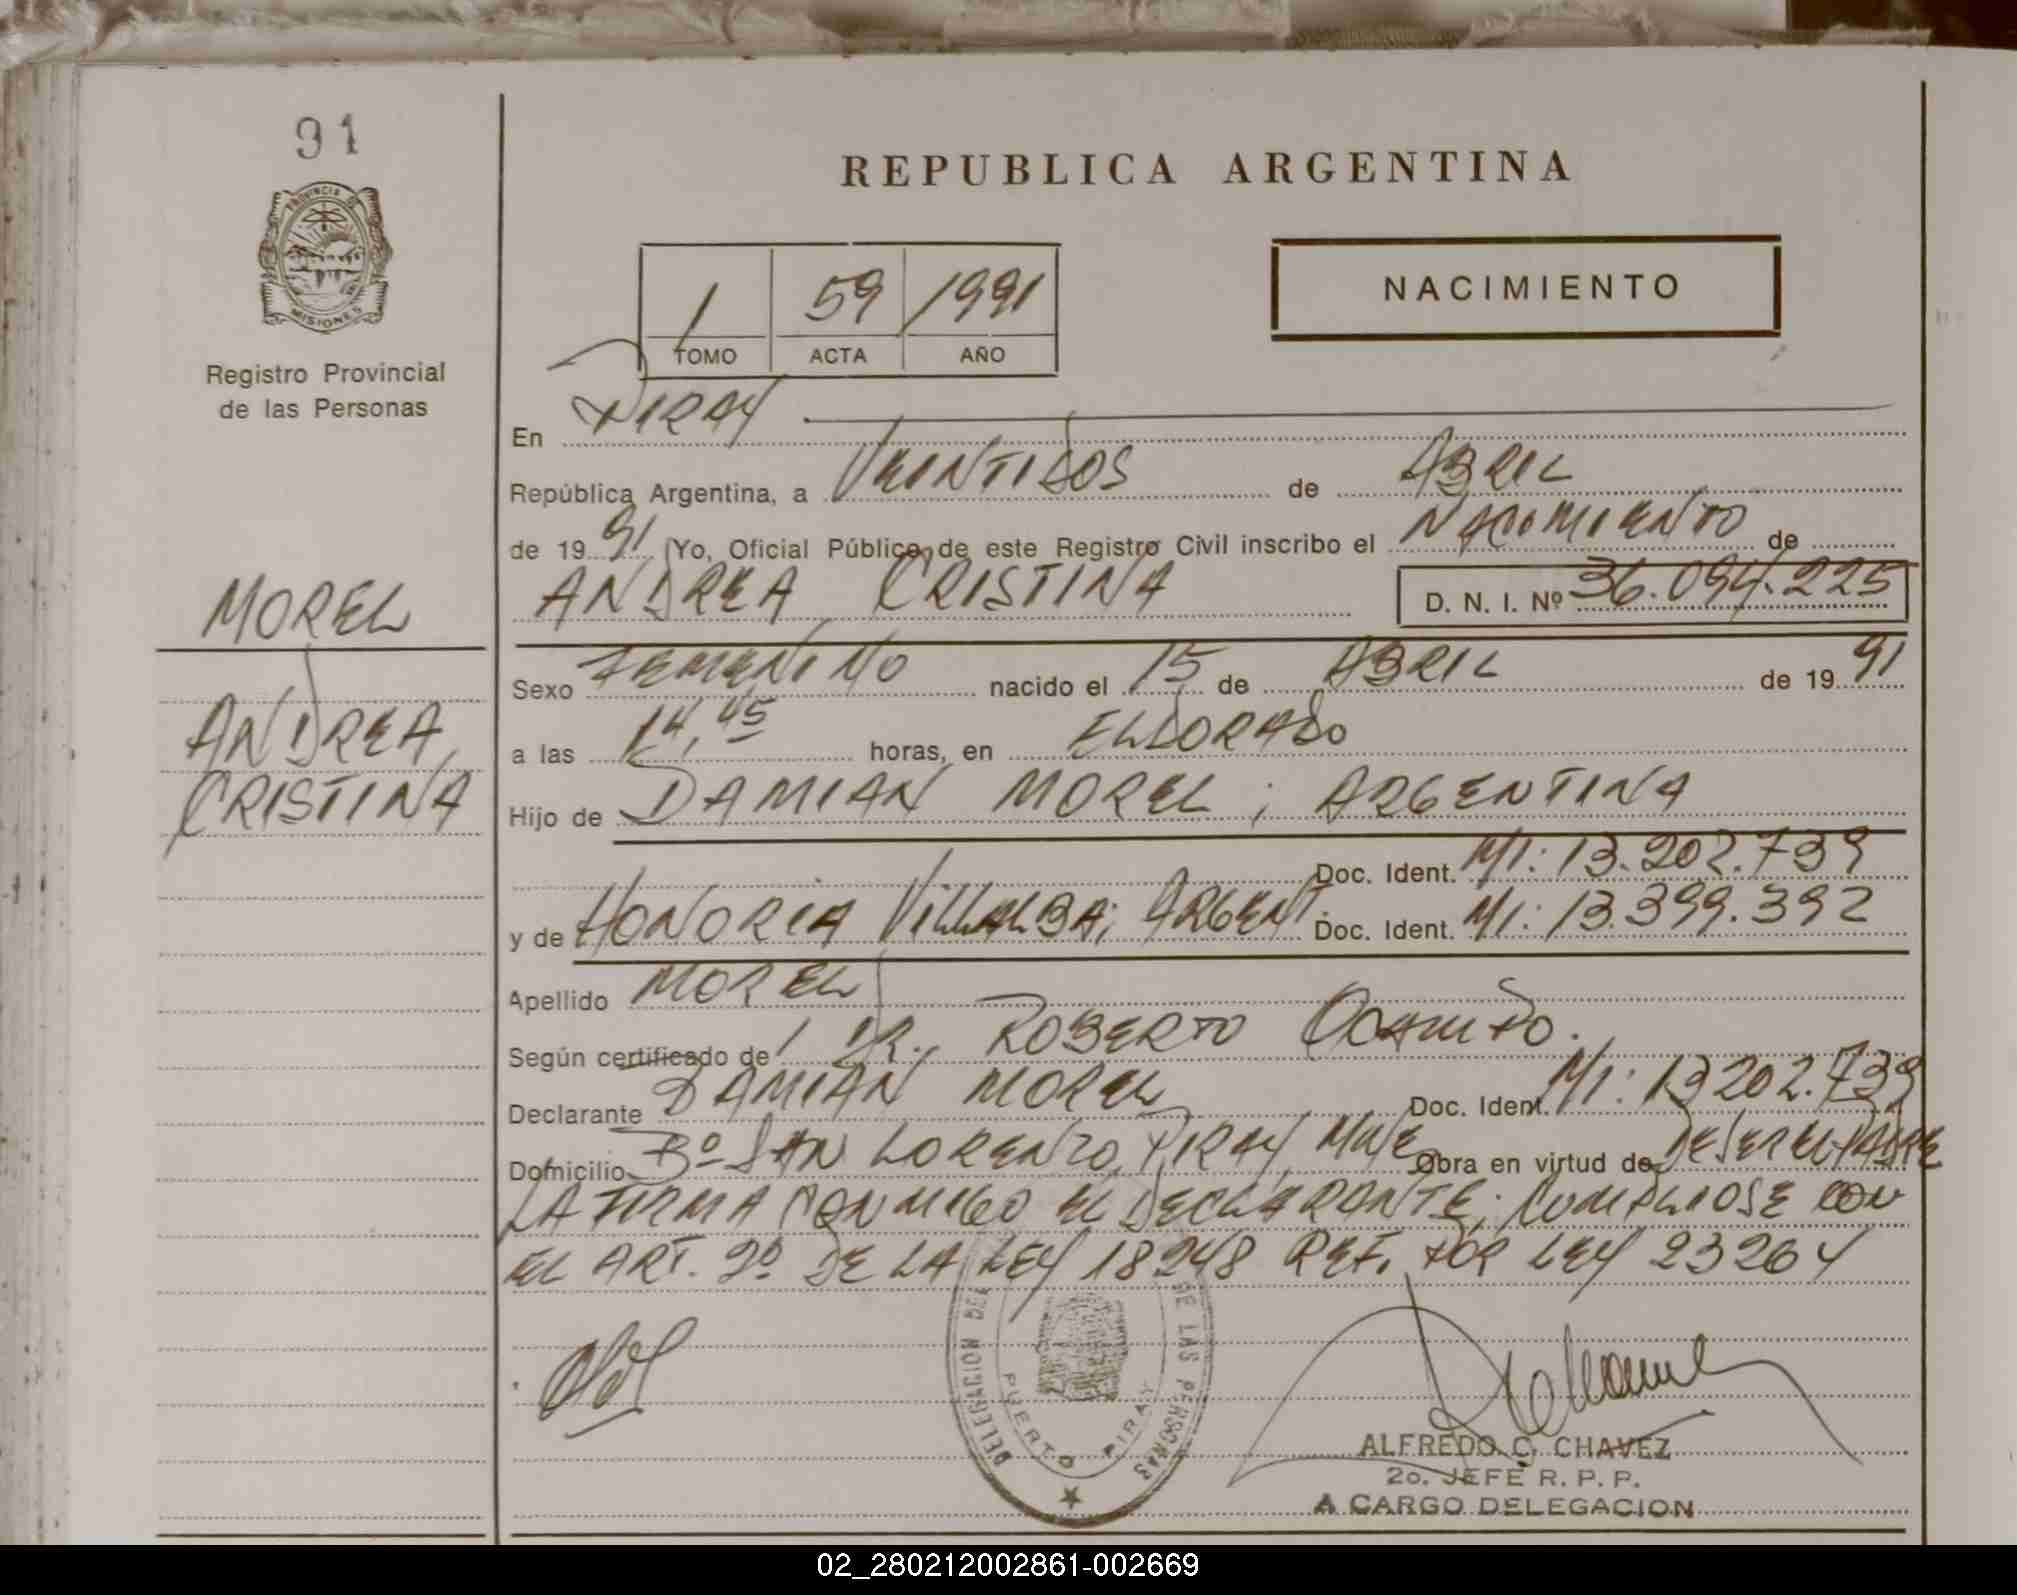 91
PROVINCIA DE
MISIONES
Registro Provincial
de las Personas
MOREL
ANDREA
CRISTINA
REPUBLICA ARGENTINA
NACIMIENTO
1 59 1991
TOMO ACTA AÑO
En PIRAY
República Argentina, a VEINTIDOS de ABRIL
de 19 91 Yo, Oficial Público, de este Registro Civil inscribo el NACIMIENTO de
ANDREA CRISTINA D. N. I. Nº 36.094.225
Sexo FEMENINO nacido el 15 de ABRIL de 19 91
a las 14,45 horas, en ELDORADO
Hijo de DAMIAN MOREL ; ARGENTINA
Doc. Ident. MI: 13.202.739
y de HONORIA VILLALBA; ARGENT. Doc. Ident. MI: 13.399.392
Apellido MOREL
Según certificado de DR. ROBERTO OCAMPO.
Declarante DAMIAN MOREL Doc. Ident. MI: 13202.739
Domicilio Bº SAN LORENZO, PIRAY, MNES Obra en virtud de DE SER EL PADRE
LA FIRMA CONMIGO EL DECLARANTE; CUMPLIOSE CON
EL ART. 2º DE LA LEY 18248 REF. POR LEY 23264
DELEGACION DE LAS PERSONAS
PUERTO PIRAY
ALFREDO C. CHAVEZ
2o. JEFE R. P. P.
A CARGO DELEGACION
02_280212002861-002669